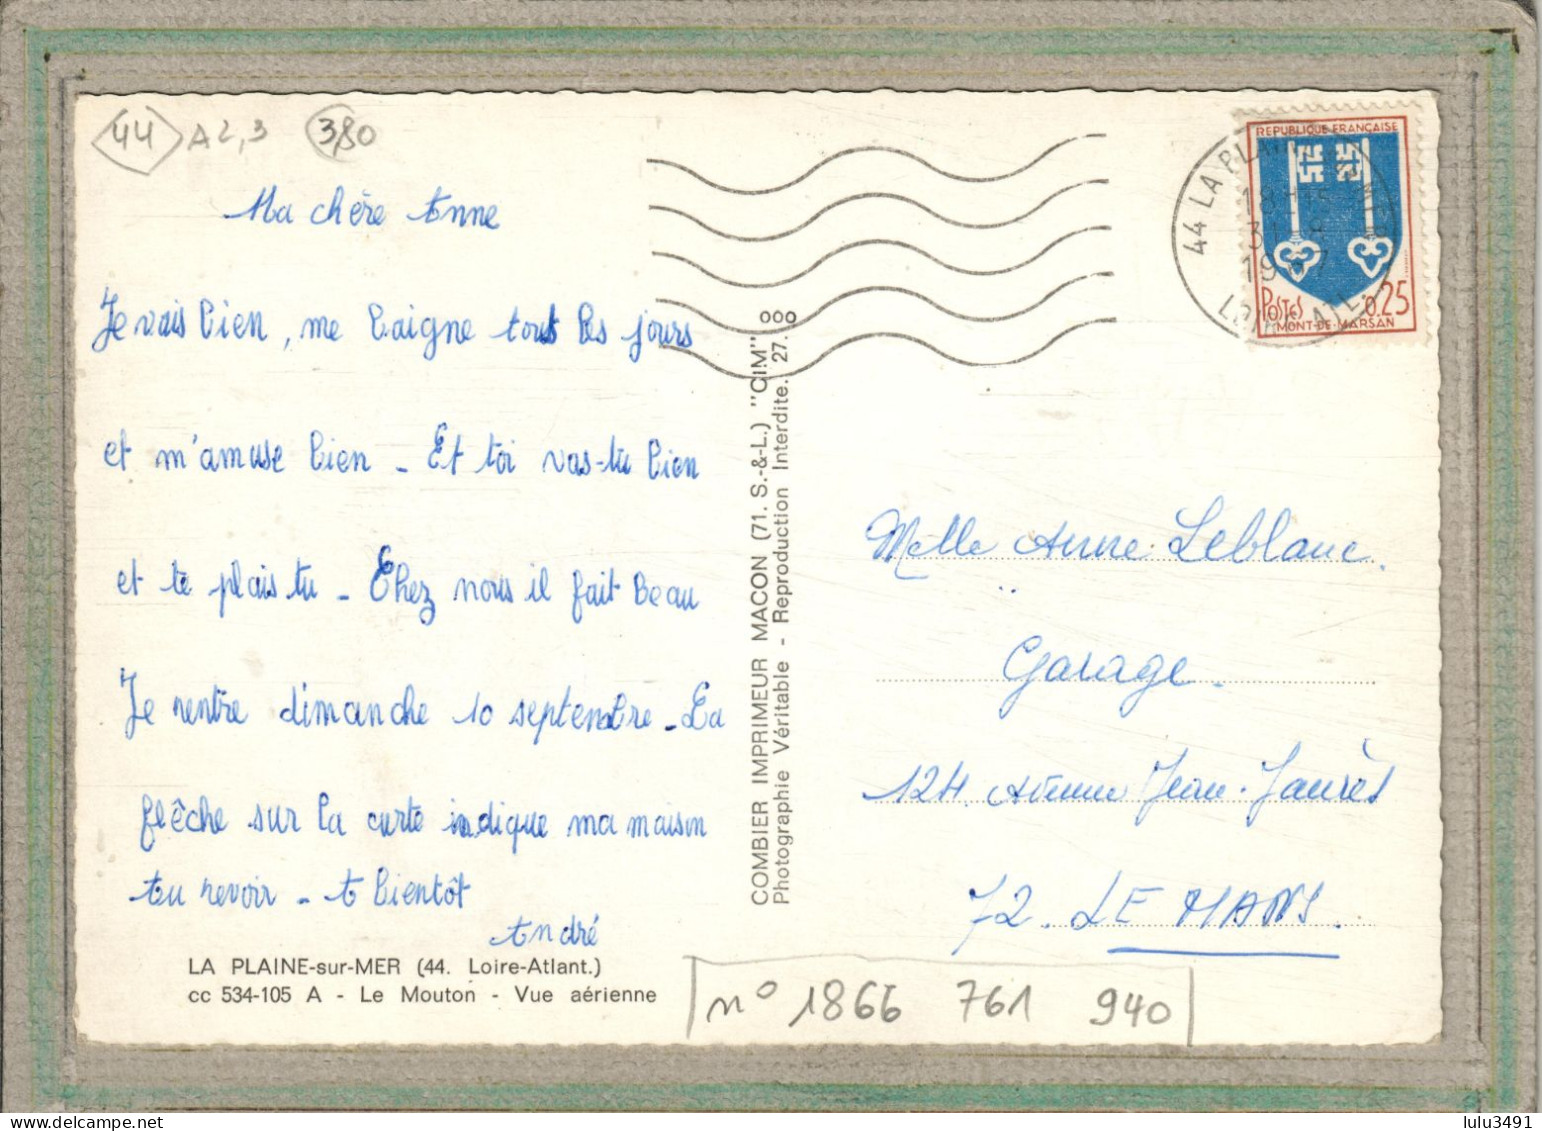 44 A2,3 3,80
Ma chère Anne
Je vais bien, me baigne tous les jours
et m'amuse bien - Et toi vas-tu bien
et te plais tu - Chez nous il fait beau
Je rentre dimanche 10 septembre - La
flèche sur la carte indique ma maison
Au revoir - A bientôt
André
LA PLAINE-sur-MER (44. Loire-Atlant.)
cc 534-105 A - Le Mouton - Vue aérienne
COMBIER IMPRIMEUR MACON (71. S.-&-L.) "CIM"
Photographie Véritable - Reproduction Interdite. 27.000
44 LA PLAINE
31 8
REPUBLIQUE FRANÇAISE
POSTES 0.25
MONT-DE-MARSAN
Melle Anne Leblanc.
Garage.
124 Avenue Jean-Jaurès
72. LE MANS.
n° 1866 761 940
lulu3491